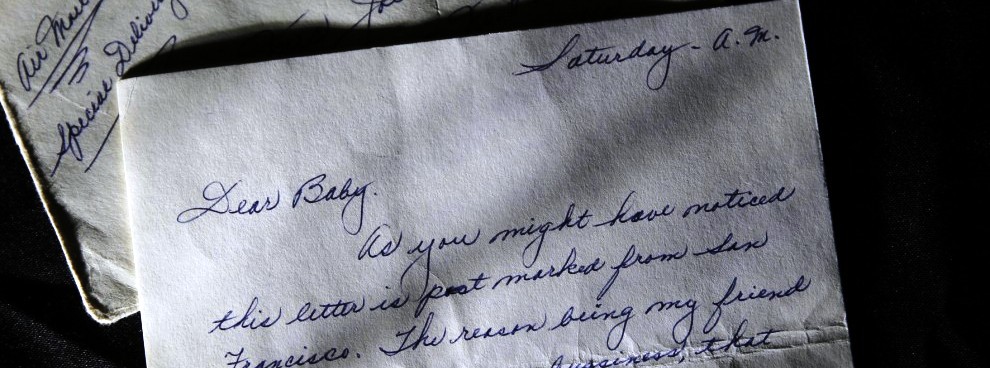 Air Mail
Special Delivery
Saturday - A.M.
Dear Baby.
As you might have noticed
this letter is post marked from San
Francisco. The reason being my friend
bussiness, that